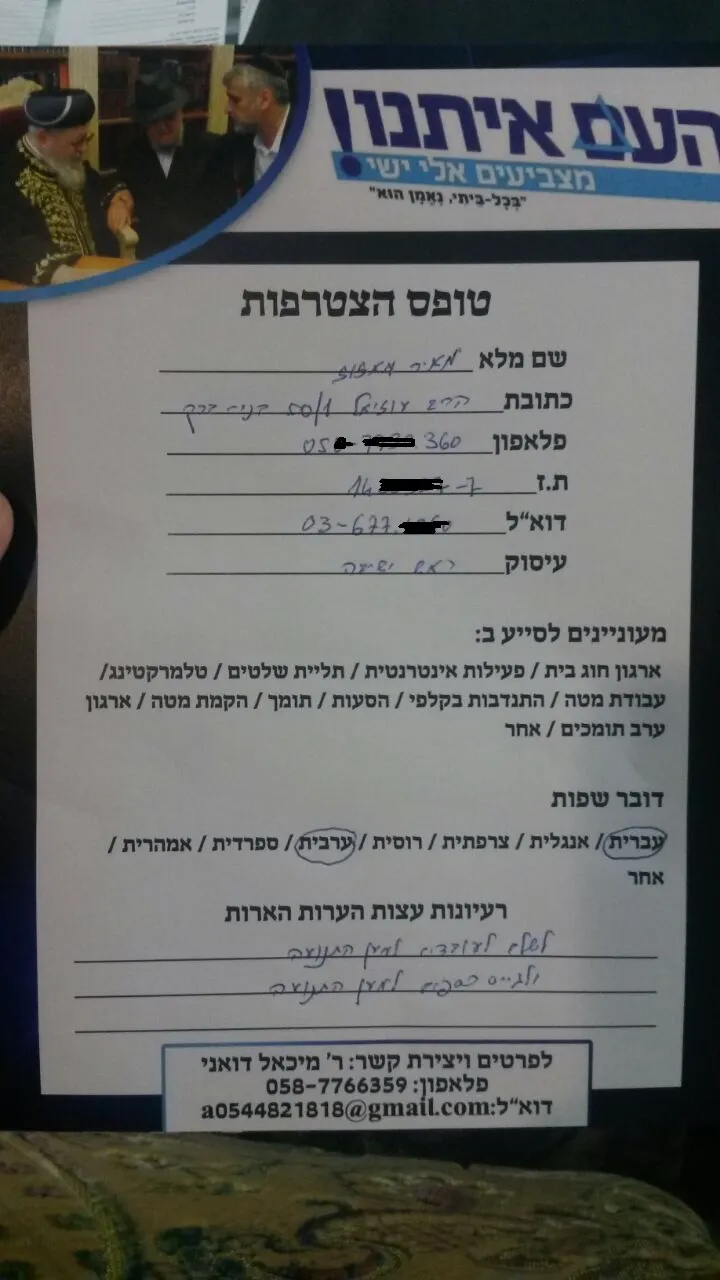 העם איתנו!
מצביעים אלי ישי
"בְּכָל-בֵּיתִי, נֶאֱמָן הוּא"
טופס הצטרפות
שם מלא מאיר מאזוז
כתובת הרב עוזיאל 50/1 בני ברק
פלאפון 05 360
ת.ז 14 7-
דוא"ל 03-677
עיסוק ראש ישיבה
מעוניינים לסייע ב:
ארגון חוג בית / פעילות אינטרנטית / תליית שלטים / טלמרקטינג/
עבודת מטה / התנדבות בקלפי / הסעות / תומך / הקמת מטה / ארגון
ערב תומכים / אחר
דובר שפות
עברית / אנגלית / צרפתית / רוסית / ערבית / ספרדית / אמהרית /
אחר
רעיונות עצות הערות הארות
לשלם לעובדים למען התנועה
ולגייס כספים למען התנועה
לפרטים ויצירת קשר: ר' מיכאל דואני
פלאפון: 058-7766359
דוא"ל:a0544821818@gmail.com